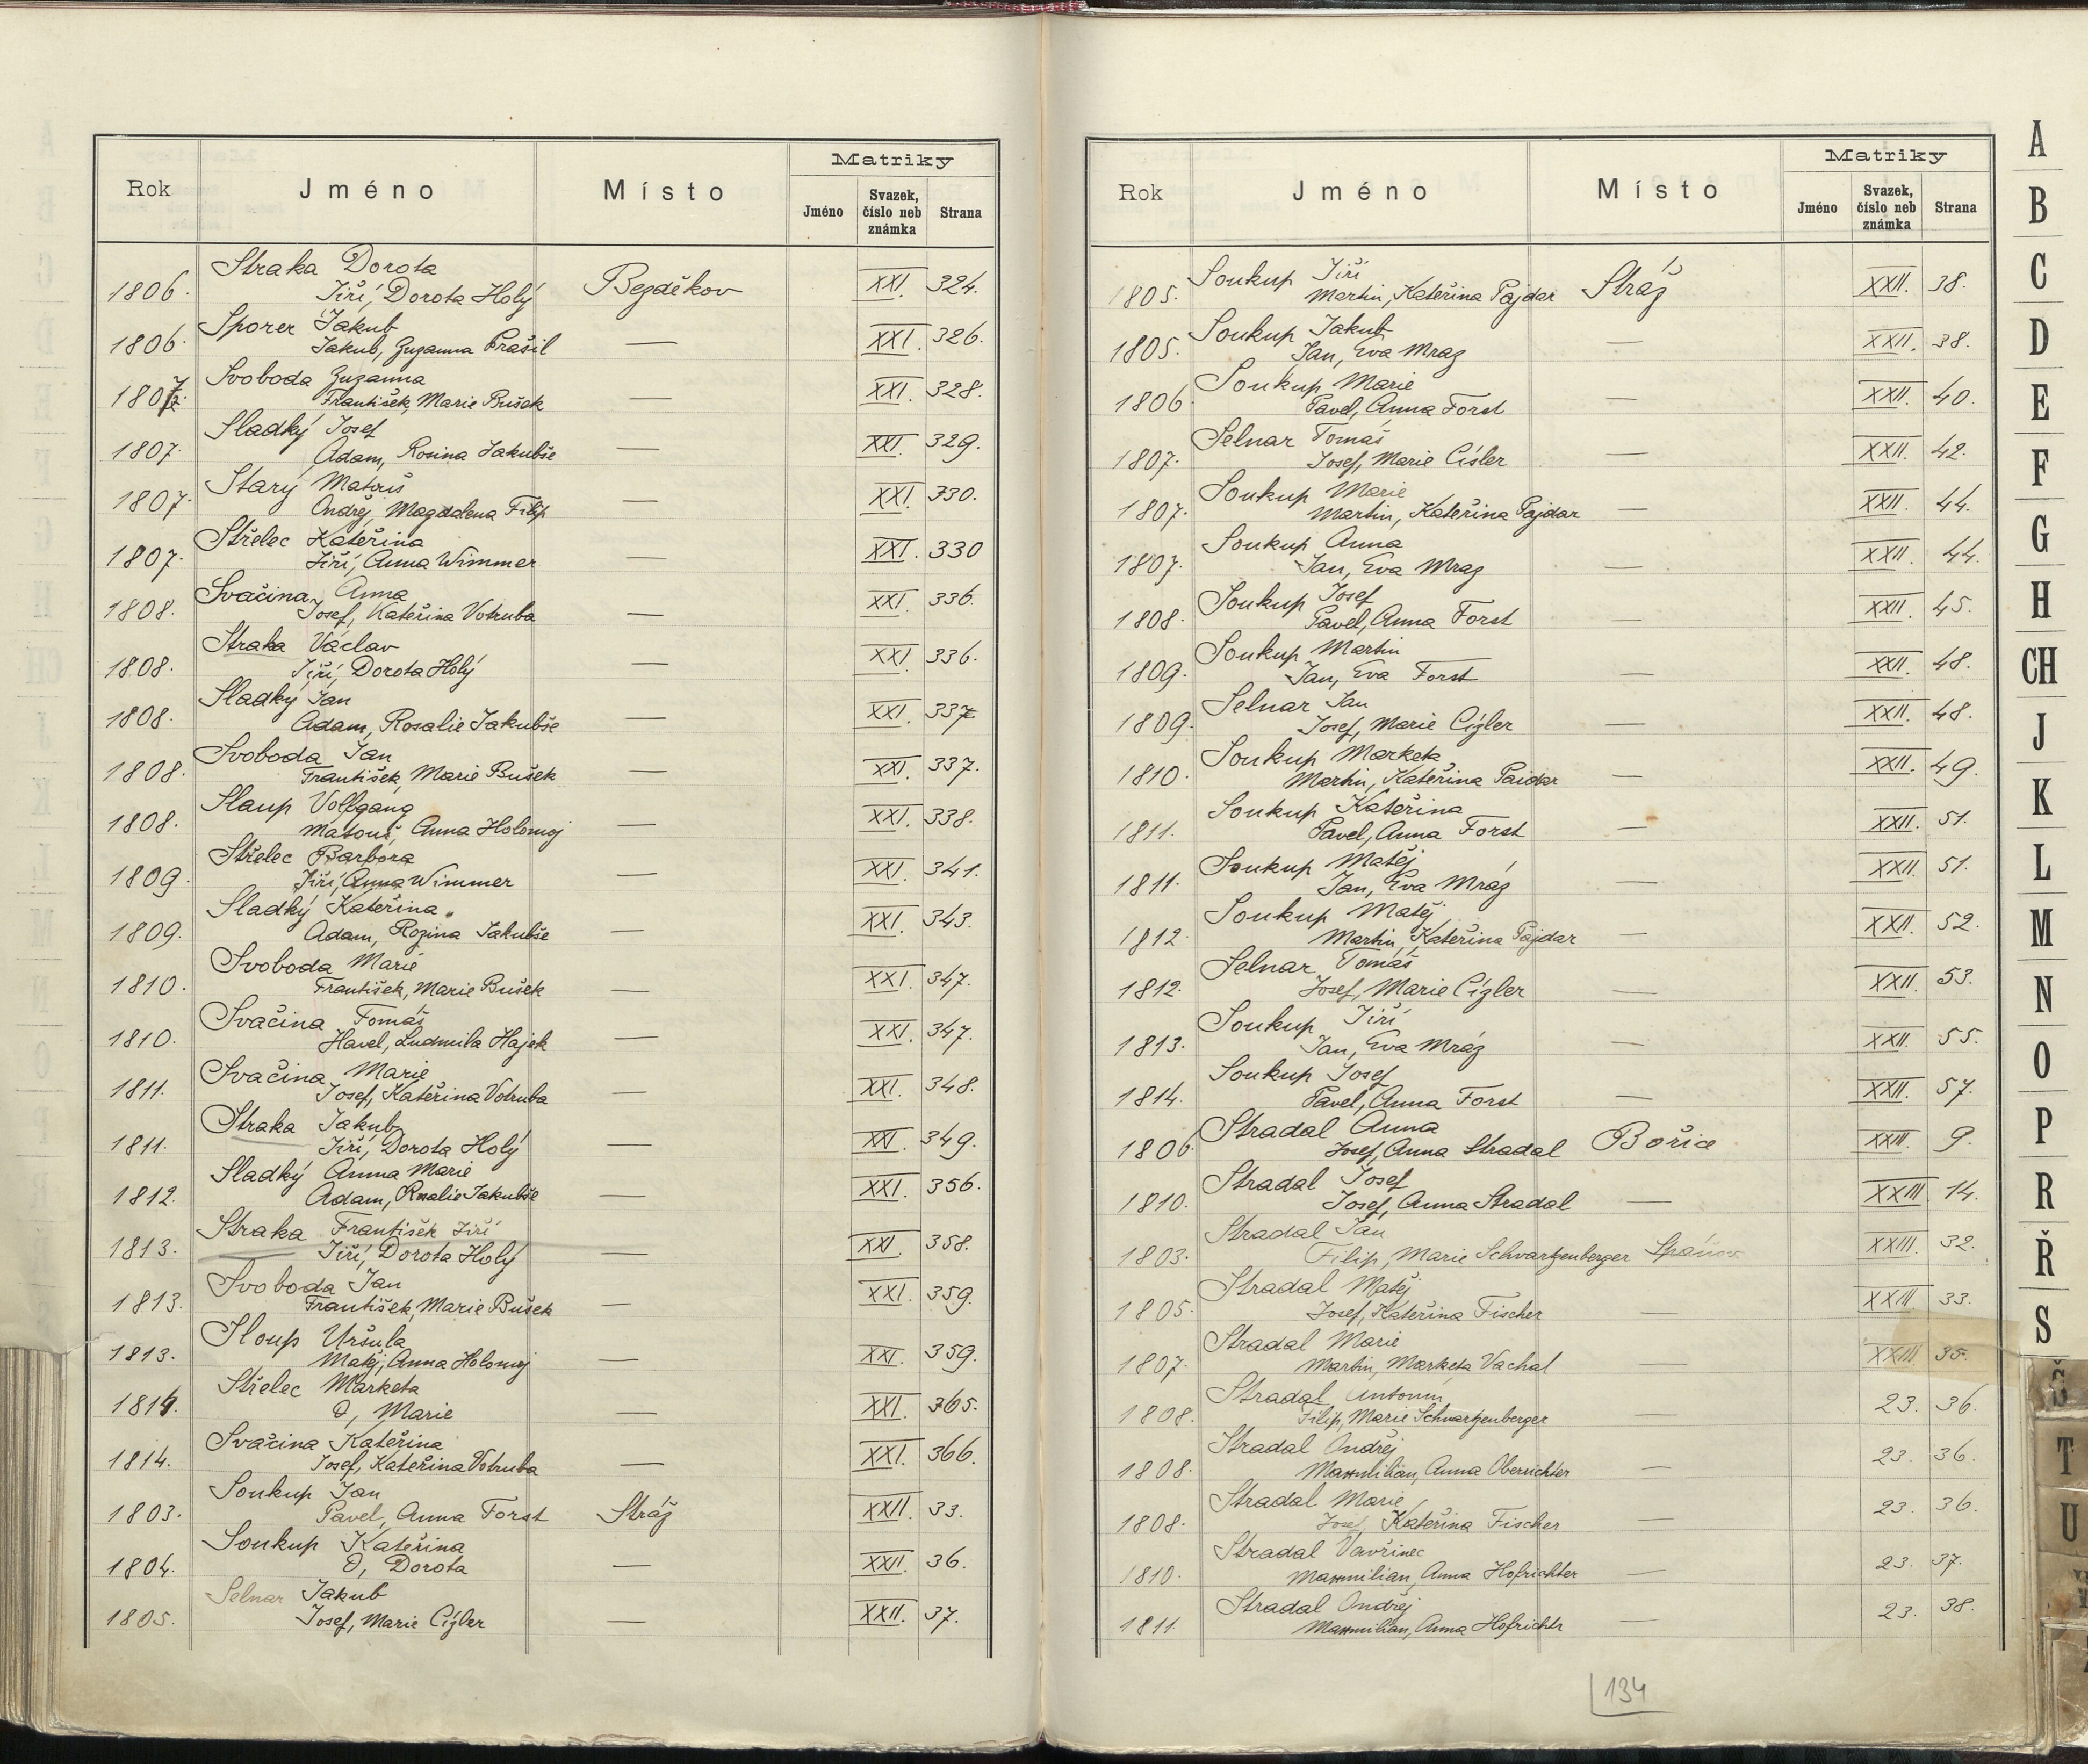 Rok Jméno Místo Matriky
Jméno Svazek, číslo neb známka Strana
Straka Dorota
1806. Jiří, Dorota Holý Bezděkov XXI. 324.
Sporer Jakub
1806. Jakub, Zuzanna Prašil — XXI. 326.
Svoboda Zuzanna
1807. František, Marie Bušek — XXI. 328.
Sladký Josef
1807. Adam, Rosina Jakubše — XXI. 329.
Starý Matouš
1807. Ondřej, Magdalena Filip — XXI. 330.
Střelec Kateřina
1807. Jiří, Anna Wimmer — XXI. 330
Svačina Anna
1808. Josef, Kateřina Votruba — XXI. 336.
Straka Václav
1808. Jiří, Dorota Holý — XXI. 336.
Sladký Jan
1808. Adam, Rosalie Jakubše — XXI. 337
Svoboda Jan
1808. František, Marie Bušek — XXI. 337.
Slaup Volfgang
1808. Matouš, Anna Holomoj — XXI. 338.
Střelec Barbora
1809. Jiří, Anna Wimmer — XXI. 341.
Sladký Kateřina
1809. Adam, Rozina Jakubše — XXI. 343.
Svoboda Marie
1810. František, Marie Bušek — XXI. 347.
Svačina Tomáš
1810. Havel, Ludmila Hajek — XXI. 347.
Svačina Marie
1811. Josef, Kateřina Votruba — XXI. 348.
Straka Jakub
1811. Jiří, Dorota Holý — XXI. 349.
Sladký Anna Marie
1812. Adam, Rosalie Jakubše — XXI. 356.
Straka František Jiří
1813. Jiří, Dorota Holý — XXI. 358.
Svoboda Jan
1813. František, Marie Bušek — XXI. 359.
Sloup Uršula
1813. Matěj, Anna Holomoj — XXI. 359.
Střelec Marketa
1814. O, Marie — XXI. 365.
Svačina Kateřina
1814. Josef, Kateřina Votruba — XXI. 366.
Soukup Jan
1803. Pavel, Anna Forst Stráž XXII. 33.
Soukup Kateřina
1804. O, Dorota — XXII. 36.
Selnar Jakub
1805. Josef, Marie Cízler — XXII. 37.
Rok Jméno Místo Matriky
Jméno Svazek, číslo neb známka Strana
Soukup Jiří
1805. Martin, Kateřina Pajdar Stráž XXII. 38.
Soukup Jakub
1805. Jan, Eva Mraz — XXII. 38.
Soukup Marie
1806 Pavel, Anna Forst — XXII. 40.
Selnar Tomáš
1807. Josef, Marie Císler — XXII. 42.
Soukup Marie
1807. Martin, Kateřina Pajdar — XXII. 44.
Soukup Anna
1807. Jan, Eva Mraz — XXII. 44.
Soukup Josef
1808. Pavel, Anna Forst — XXII. 45.
Soukup Martin
1809. Jan, Eva Forst — XXII. 48.
Selnar Jan
1809. Josef, Marie Cízler — XXII. 48.
Soukup Marketa
1810. Martin, Kateřina Paidar — XXII. 49.
Soukup Kateřina
1811. Pavel, Anna Forst — XXII. 51.
Soukup Matěj
1811. Jan, Eva Mráz — XXII. 51.
Soukup Matěj
1812. Martin, Kateřina Pajdar — XXII. 52.
Selnar Tomáš
1812. Josef, Marie Cízler — XXII. 53.
Soukup Jiří
1813. Jan, Eva Mráz — XXII. 55.
Soukup Josef
1814. Pavel, Anna Forst — XXII. 57.
Stradal Anna
1806. Josef, Anna Stradal Bořice XXIII. 9.
Stradal Josef
1810. Josef, Anna Stradal — XXIII. 14.
Stradal Jan
1803. Filip, Marie Schvartzenberger Spáňov XXIII. 32.
Stradal Matěj
1805. Josef, Kateřina Fischer — XXIII. 33.
Stradal Marie
1807. Martin, Marketa Vachal — XXIII 35.
Stradal Antonin
1808. Filip, Marie Schvartzenberger — 23. 36.
Stradal Ondřej
1808. Maxmilián, Anna Oberrichter — 23. 36.
Stradal Marie
1808. Josef, Kateřina Fischer — 23. 36.
Stradal Vavřinec
1810. Maxmilian, Anna Hofrichter — 23. 37.
Stradal Ondřej
1811. Maxmilian, Anna Hofrichtr — 23. 38.
134
A
B
C
D
E
F
G
H
CH
J
K
L
M
N
O
P
R
Ř
S
Š
T
U